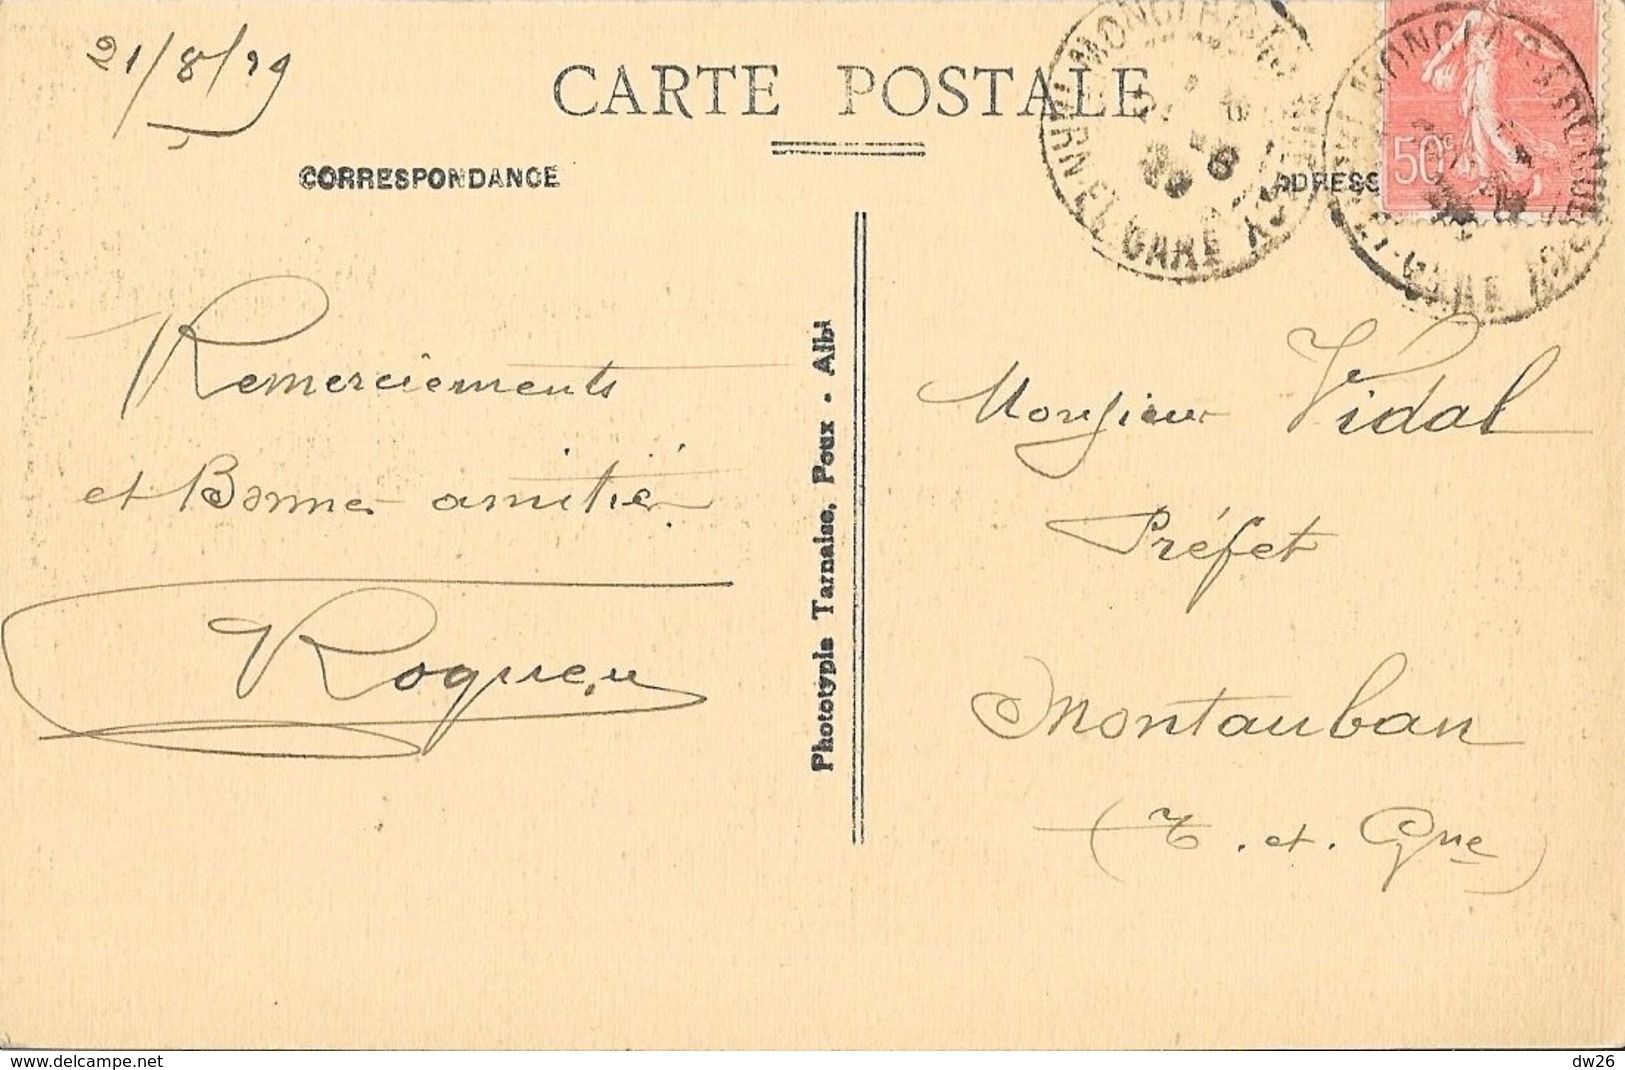 21/8/29
CARTE POSTALE
CORRESPONDANCE
ADRESS
50c
Remerciements
et Bonne amitié.
Phototypie Tarnaise, Poux - Albi
Monsieur Vidal
Préfet
Montauban
(T. et. Gne)
www.delcampe.net
dw26